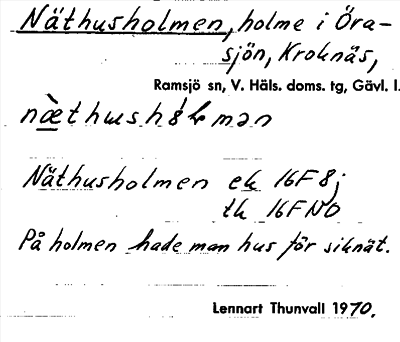 Näthusholmen, holme i Öra-
sjön, Kroknäs,
Ramsjö sn, V. Häls. doms. tg, Gävl. l.
Näthusholmen ek 16F8j
tk 16F NO
På holmen hade man hus för siknät.
Lennart Thunvall 1970.